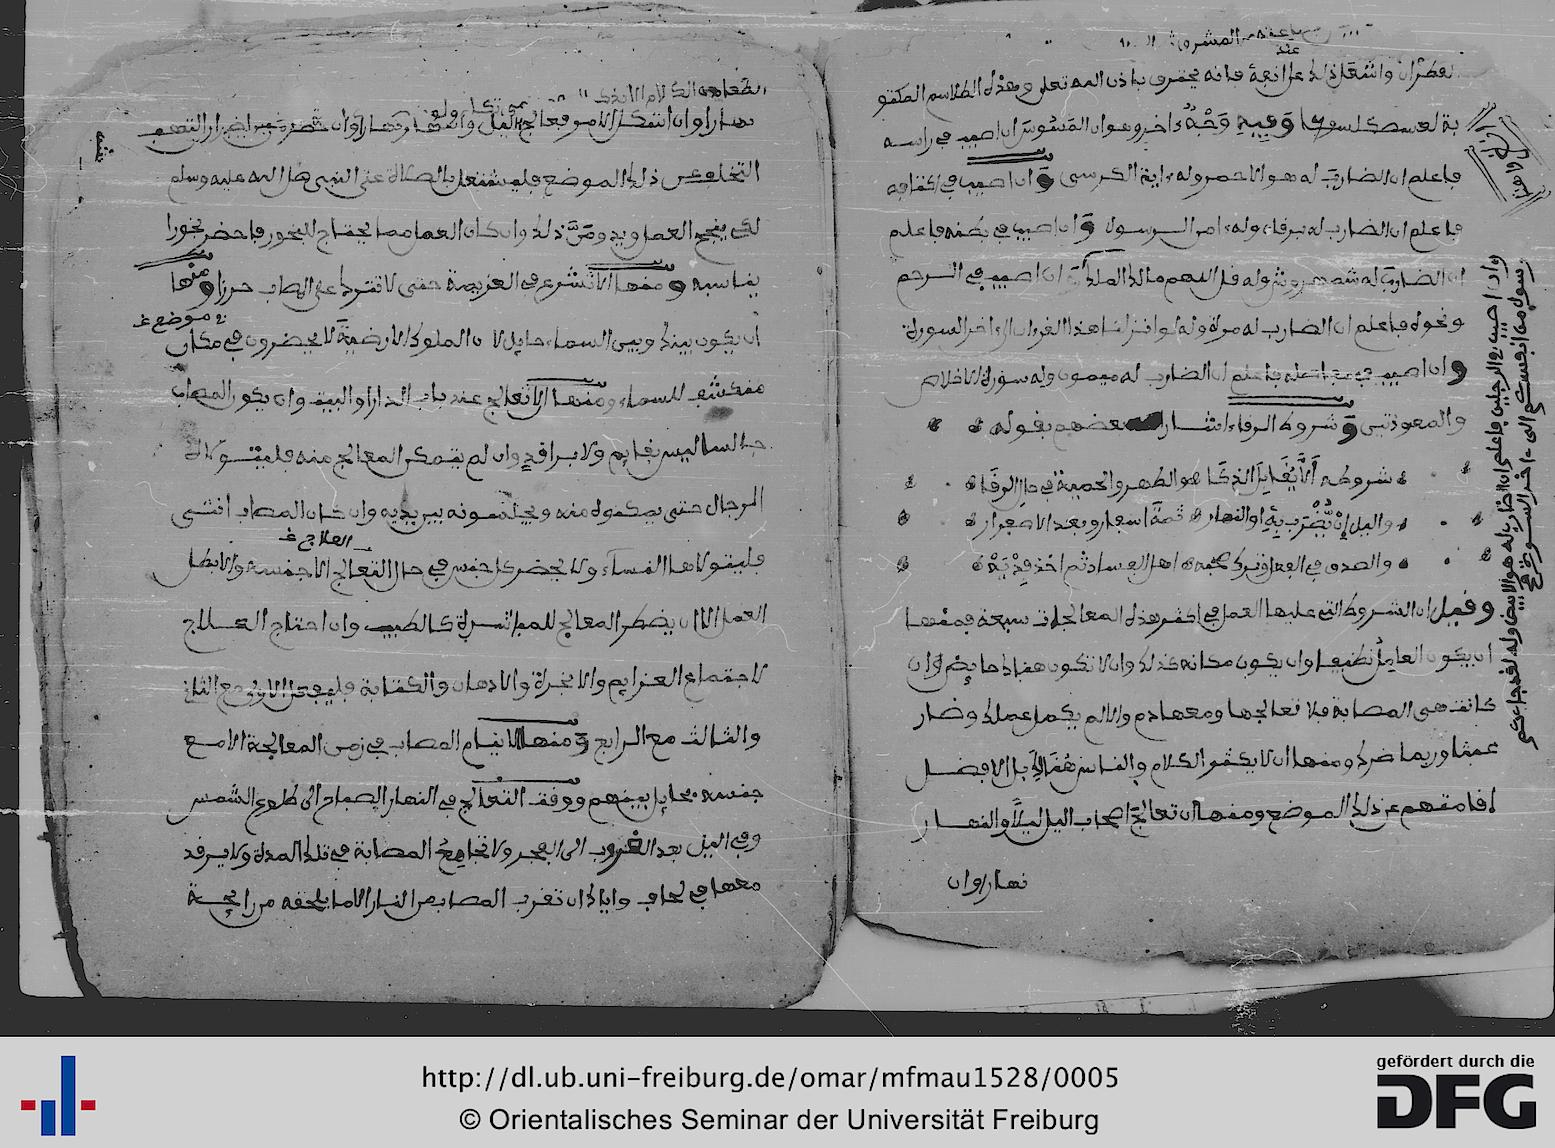 القطران واشتغل ذلك على انفه فانه يحترق باذن الله تعلى وهذه الطلاسم المكتو
وجه ءاخر وهو ان الممسوس ان اصيب في راسه
فاعلم ان الضارب له هو الاحمر وله ءاية الكرسي وان اصيب في اكتافه
فاعلم ان الضارب له برقان وله ءامن الرسول وان اصيب في بطنه فاعلم
ان الضارب له شمهروش وله قل اللهم مالك الملك وان اصيب في الرحم
ونحوه فاعلم ان الضارب له مرة وله لو انزلنا هذا القرءان الى ءاخر السورة
وان اصيب في فاعلم ان الضارب له ميمون وله سورة الاخلاص
والمعوذتين وشروط الرقاء اشار بعضهم بقوله
شروطه هو الطهر والحمية في حال الرقا
واليل او النهار ثمة اسحار وبعد الاصفرار
والصدق في اهل الفساد ثم اخذ فدية
وقيل ان الشروط التي عليها العمل في اكثر هذه المعالجات سبعة فمنها
ان يكون العامل نظيفا وان يكون مكانه كذلك وان لا تكون هناك حايض وان
كانت هي المصابة فلا تعالجها ومعها دم والا لم يكمل عملك وصار
عبثا وربما ضرك ومنها ان لا يكثر الكلام والناس هنالك بل الافضل
اقامتهم عن ذلك الموضع ومنها ان تعالج اصحاب اليل ليلا والنهار
نهارا وان
وان اصيب في الرجلين فاعلم ان الضارب له هو الابيض وله لقد جاءكم
رسول من انفسكم الى ءاخر السورة
نهارا وان
التخلف عن ذلك الموضع فليشتغل بالصلاة على النبي صلى الله عليه وسلم
لكي ينجح العمل ويدوم ذلك وان كان العمل مما يحتاج للبخور فاحضر بخورا
يناسبه ومنها الا تشرع في العزيمة حتى لا تترك على المصاب حرزا ومنها
موضع
ان يكون بينك وبين السماء حايل لان الملوك الارضية لا يحضرون في مكان
منكشف للسماء ومنها الا تعالج عند باب الدار او البيت وان يكون المصاب
جالسا ليس بقايم ولا براقد وان لم يتمكن المعالج منه فليتولاه
الرجال حتى يمكنوه منه ويجلسونه بين يديه وان كان المصاب انثى
العلاج
فليتولاها النساء ولا يحضر في حال التعالج الا جنسه والا بطل
العمل الا ان يضطر المعالج للمباشرة كالطبيب وان احتاج العلاج
لاجتماع العزايم والابخرة والادهان والكتابة فليجعل الاول مع الثاني
والثالث مع الرابع ومنها الا ينام المصاب في زمن المعالجة الا مع
جنسه بحايل بينهم ووقت التعالج في النهار الصباح الى طلوع الشمس
وفي اليل بعد الغروب الى الفجر ولا تجامع المصابة في تلك المدة ولا يرقد
معها في لحاف واياك ان تقرب المصاب من النار الا ما يلحقه من رايحة
http://dl.ub.uni-freiburg.de/omar/mfmau1528/0005
© Orientalisches Seminar der Universität Freiburg
gefördert durch die
DFG